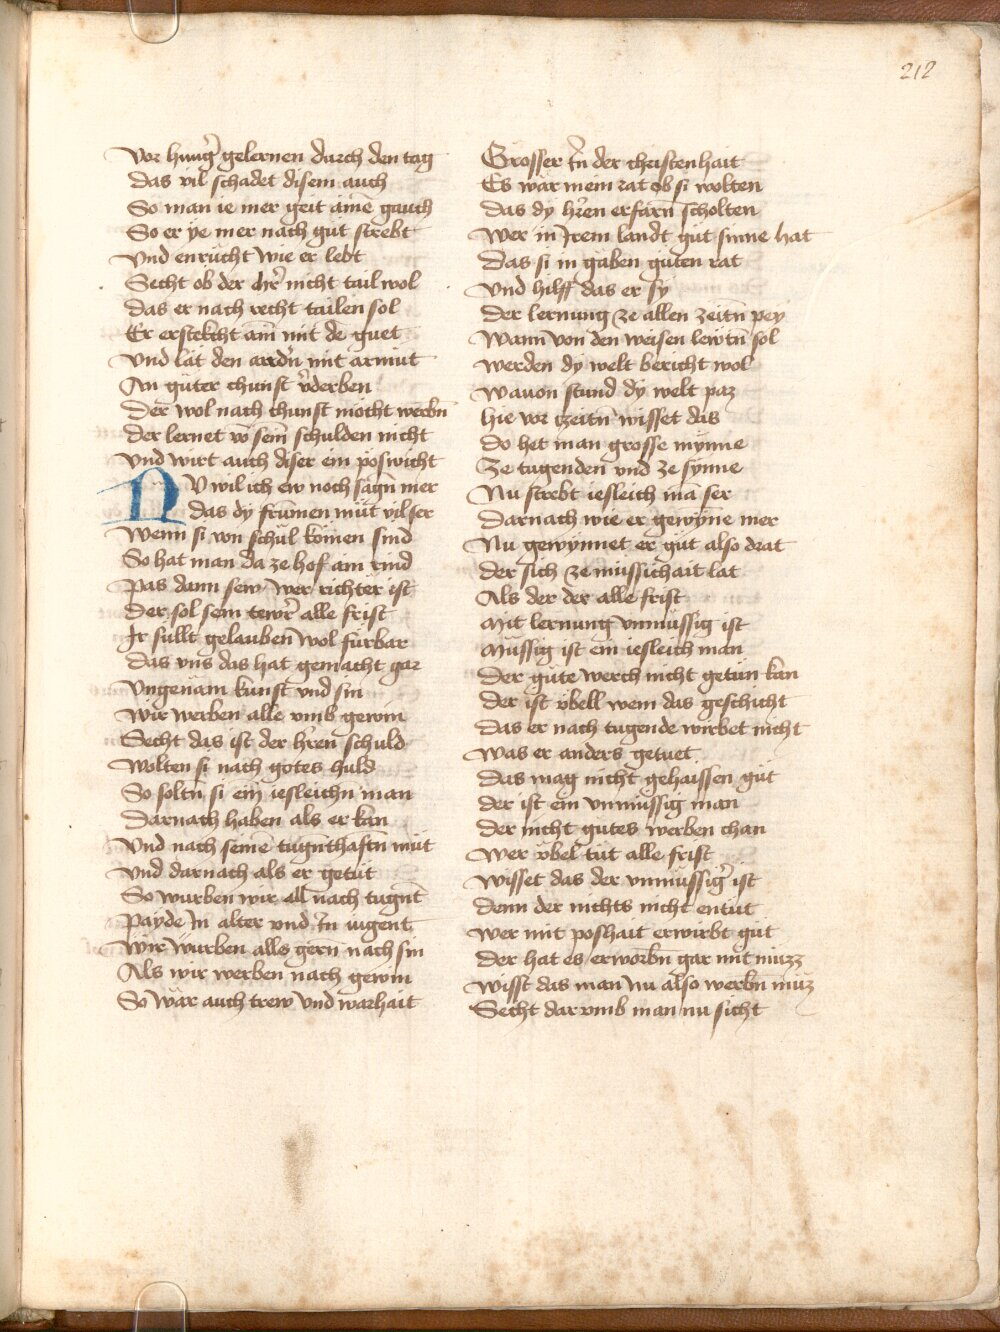 212
Vor hung̃ gelernen durch den tag
Das vil schadet disem auch
So man ie mer geit ainē gauch
So er ye mer nach gut strebt
Vnd enrucht wie er lebt
Secht ob der hr̃ nicht tail wol
Das er nach recht tailen sol
Er ersteckcht ain mit dē guet
Vnd lat den anndñ mit armut
An guter chunst ṽderben
Der wol nach chunst mocht werbñ
Der lernet vō seim̄ schulden nicht
Vnd wirt auch diser ein poswicht
NV wil ich ew noch sagñ mer
das dy frumen müt vil ser
Wenn si von schul komen sind
So hat man da ze hof ain rind
Pas dann sew wer richter ist
Der sol sein tewr̃ alle frist
Ir sullt gelauben wol fürbar
Das vns das hat gemacht gar
Vngenäm kunst vnd sin
Wir werben alle vmb gewin
Secht das ist der hr̃en schuld
Wolten si nach gotes huld
So soltñ si ein iesleichñ man
Darnach haben als er kan
Vnd nach seinē tugñthaftñ müt
Vnd darnach als er getüt
So wurben wir all nach tugñt
Payde in alter vnd in iugent
Wir wurben alle gern nach sin
Als wir werben nach gewin
So wär auch trew vnd warhait
Grosser in der christenhait
Es wär mein rat ob si wolten
Das dy hr̃en erfarñ scholten
Wer in Irem landt gut sinne hat
Das si in gäben guten rat
Vnd hilff das er sy
Der lernung ze allen zeitñ pey
Wann von den weisen lewtñ sol
Werden dy welt bericht wol
Wauon stund dy welt paz
Hie vor tzeitñ wisset das
Do het man grosse mynne
Ze tugenden vnd ze synne
Nu strebt iesleich mā ser
Darnach wie er gewyne mer
Nu gewynnet er gut also drat
Der sich ze müssichait lat
Als der der alle frist
Mit lernung vnmüssig ist
Müssig ist ein iesleich man
Der güte werch nicht getün kan
Der ist vbell wem das geschicht
Das er nach tugende wirbet nicht
Was er anders getuet
Das mag nicht gehaissen güt
Der ist ein vnmüssig man
Der nicht gutes werben chan
Wer vbel tüt alle frist
Wisset das der vnmüssig̃ ist
Denn der nichts nicht entüt
Wer mit poshait erwirbt güt
Der hat es erworbñ gar mit müzz
Wisst das man nu also werbñ müz
Secht dar vmb man nu sicht